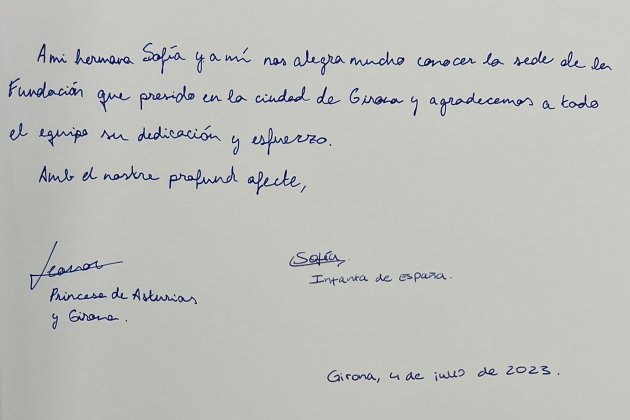 A mi hermana Sofía y a mí nos alegra mucho conocer la sede de la
Fundación que presido en la ciudad de Girona y agradecemos a todo
el equipo su dedicación y esfuerzo.
Amb el nostre profund afecte,
Leonor
Princesa de Asturias
y Girona.
Sofía
Infanta de España.
Girona, 4 de julio de 2023.